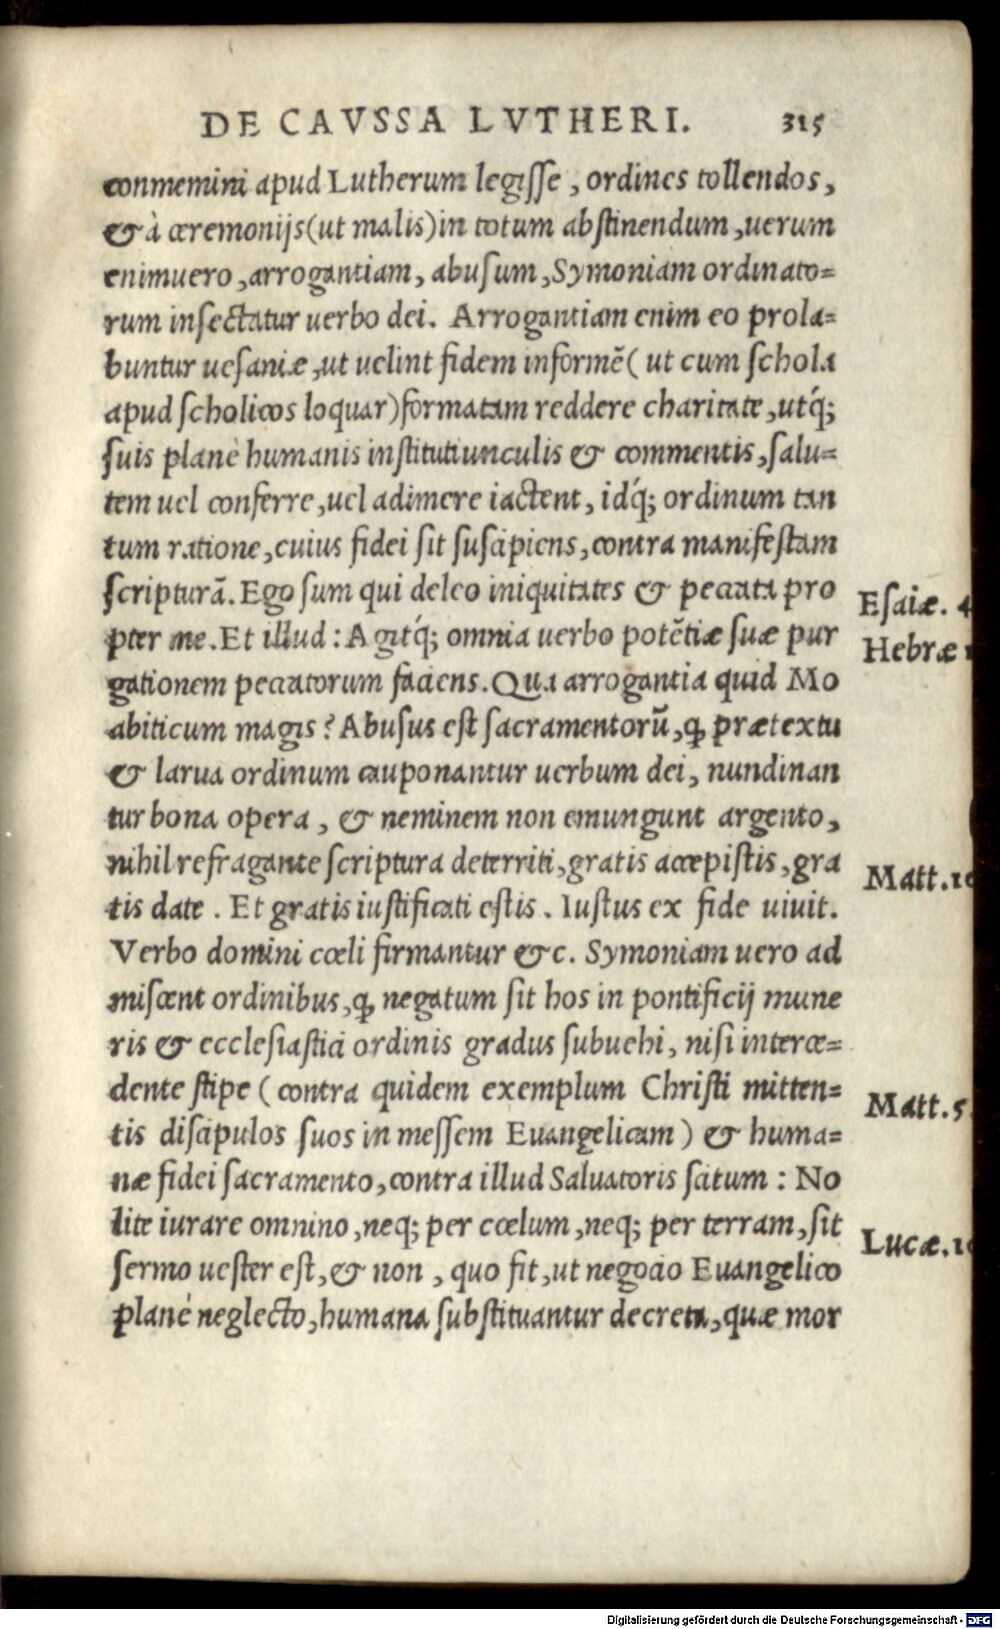 DE CAVSSA LVTHERI. 315
conmemini apud Lutherum legisse, ordines tollendos,
& à ceremonijs (ut malis) in totum abstinendum, uerum
enimuero, arrogantiam, abusum, Symoniam ordinato=
rum insectatur uerbo dei. Arrogantiam enim eo prola=
buntur uesaniæ, ut uelint fidem informē (ut cum schola
apud scholicos loquar) formatam reddere charitate, utq́;
suis planè humanis institutiunculis & commentis, salu=
tem uel conferre, uel adimere iactent, idq́; ordinum tan
tum ratione, cuius fidei sit suscipiens, contra manifestam
scripturā. Ego sum qui deleo iniquitates & peccata pro
pter me. Et illud: Agitq́; omnia uerbo potētiæ suæ pur
gationem peccatorum faciens. Qua arrogantia quid Mo
abiticum magis? Abusus est sacramentorū, ꝙ prætextu
& larua ordinum cauponantur uerbum dei, nundinan
tur bona opera, & neminem non emungunt argento,
nihil refragante scriptura deterriti, gratis accepistis, gra
tis date. Et gratis iustificati estis. Iustus ex fide uiuit.
Verbo domini cœli firmantur &c. Symoniam uero ad
miscent ordinibus, ꝙ negatum sit hos in pontificij mune
ris & ecclesiastici ordinis gradus subuehi, nisi interce=
dente stipe (contra quidem exemplum Christi mitten=
tis discipulos suos in messem Euangelicam) & huma=
næ fidei sacramento, contra illud Saluatoris scitum: No
lite iurare omnino, neq; per cœlum, neq; per terram, sit
sermo uester est, & non, quo fit, ut negocio Euangelico
planè neglecto, humana substituantur decreta, quæ mor
Esaiæ. 4
Hebræ 1
Matt. 10
Matt. 5
Lucæ. 10
Digitalisierung gefördert durch die Deutsche Forschungsgemeinschaft - DFG